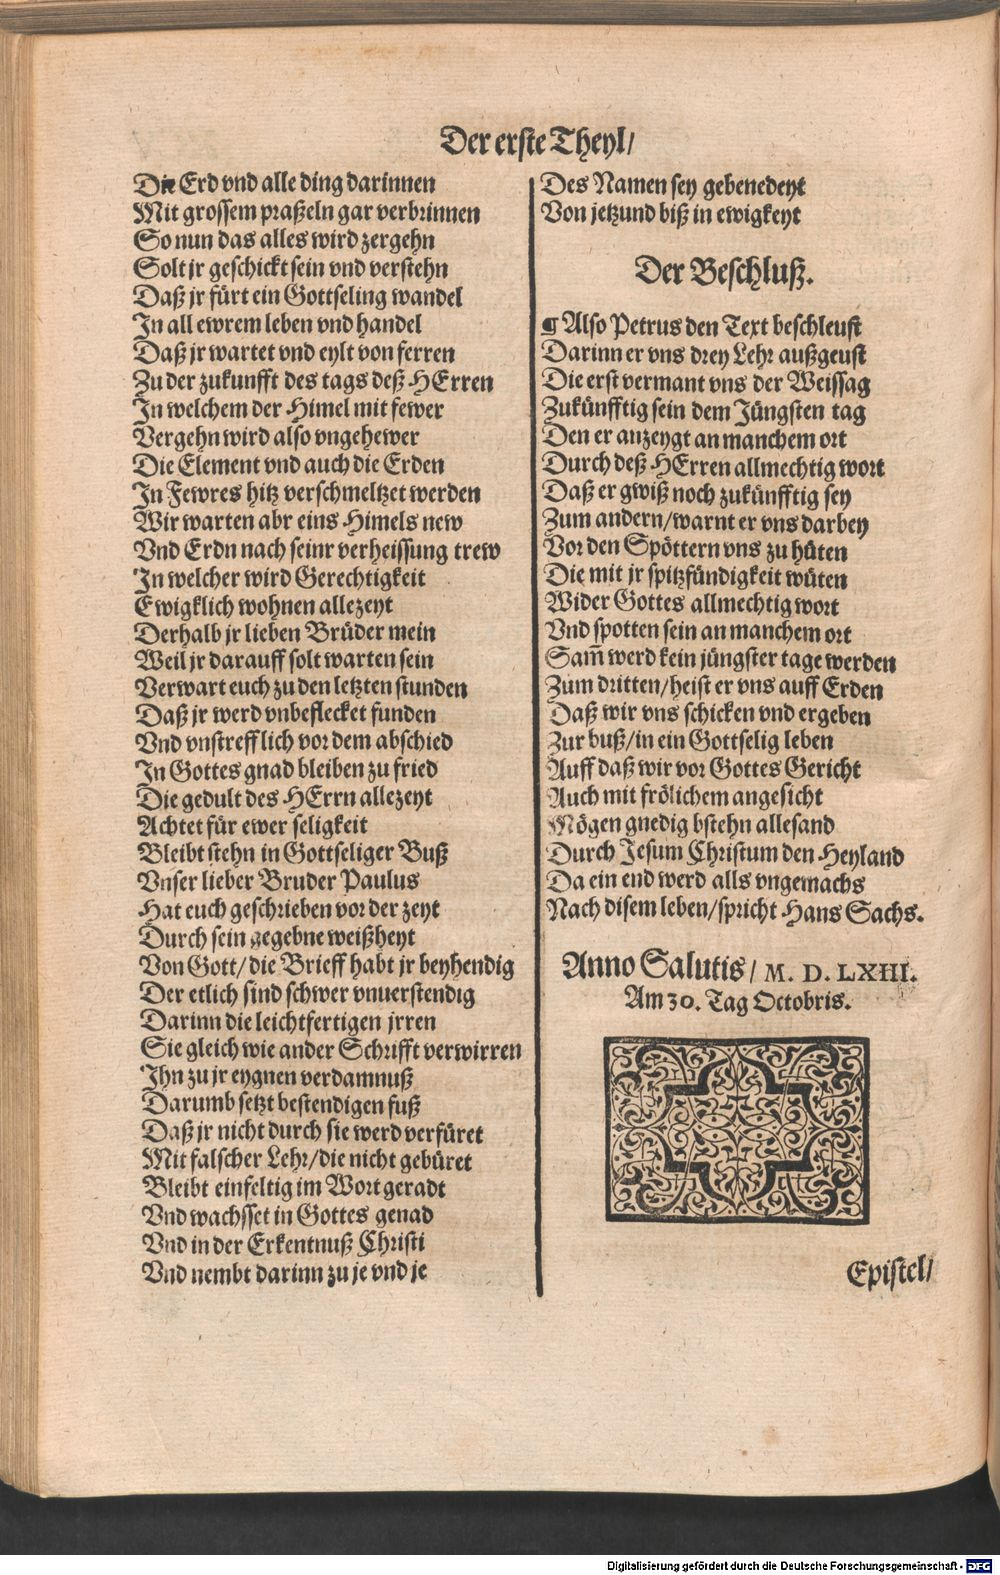 Der erste Theyl/
Die Erd vnd alle ding darinnen
Mit grossem praßeln gar verbrinnen
So nun das alles wird zergehn
Solt jr geschickt sein vnd verstehn
Daß jr fürt ein Gottseling wandel
In all ewrem leben vnd handel
Daß jr wartet vnd eylt von ferren
Zu der zukunfft des tags deß HErren
In welchem der Himel mit fewer
Vergehn wird also vngehewer
Die Element vnd auch die Erden
In Fewres hitz verschmeltzet werden
Wir warten abr eins Himels new
Vnd Erdn nach seinr verheissung trew
In welcher wird Gerechtigkeit
Ewigklich wohnen allezeyt
Derhalb jr lieben Brüder mein
Weil jr darauff solt warten sein
Verwart euch zu den letzten stunden
Daß jr werd vnbeflecket funden
Vnd vnstrefflich vor dem abschied
In Gottes gnad bleiben zu fried
Die gedult des HErrn allezeyt
Achtet für ewer seligkeit
Bleibt stehn in Gottseliger Buß
Vnser lieber Bruder Paulus
Hat euch geschrieben vor der zeyt
Durch sein gegebne weißheyt
Von Gott/die Brieff habt jr beyhendig
Der etlich sind schwer vnuerstendig
Darinn die leichtfertigen jrren
Sie gleich wie ander Schrifft verwirren
Ihn zu jr eygnen verdamnuß
Darumb setzt bestendigen fuß
Daß jr nicht durch sie werd verfüret
Mit falscher Lehr/die nicht gebüret
Bleibt einfeltig im Wort geradt
Vnd wachsset in Gottes genad
Vnd in der Erkentnuß Christi
Vnd nembt darinn zu je vnd je
Des Namen sey gebenedeyt
Von jetzund biß in ewigkeyt
Der Beschluß.
¶ Also Petrus den Text beschleust
Darinn er vns drey Lehr außgeust
Die erst vermant vns der Weissag
Zukünfftig sein dem Jüngsten tag
Den er anzeygt an manchem ort
Durch deß HErren allmechtig wort
Daß er gwiß noch zukünfftig sey
Zum andern/warnt er vns darbey
Vor den Spöttern vns zu hüten
Die mit jr spitzfündigkeit wüten
Wider Gottes allmechtig wort
Vnd spotten sein an manchem ort
Sam̃ werd kein jüngster tage werden
Zum dritten/heist er vns auff Erden
Daß wir vns schicken vnd ergeben
Zur buß/in ein Gottselig leben
Auff daß wir vor Gottes Gericht
Auch mit frölichem angesicht
Mögen gnedig bstehn allesand
Durch Jesum Christum den Heyland
Da ein end werd alls vngemachs
Nach disem leben/spricht Hans Sachs.
Anno Salutis/ M. D. LXIII.
Am 30. Tag Octobris.
Epistel/
Digitalisierung gefördert durch die Deutsche Forschungsgemeinschaft - DFG